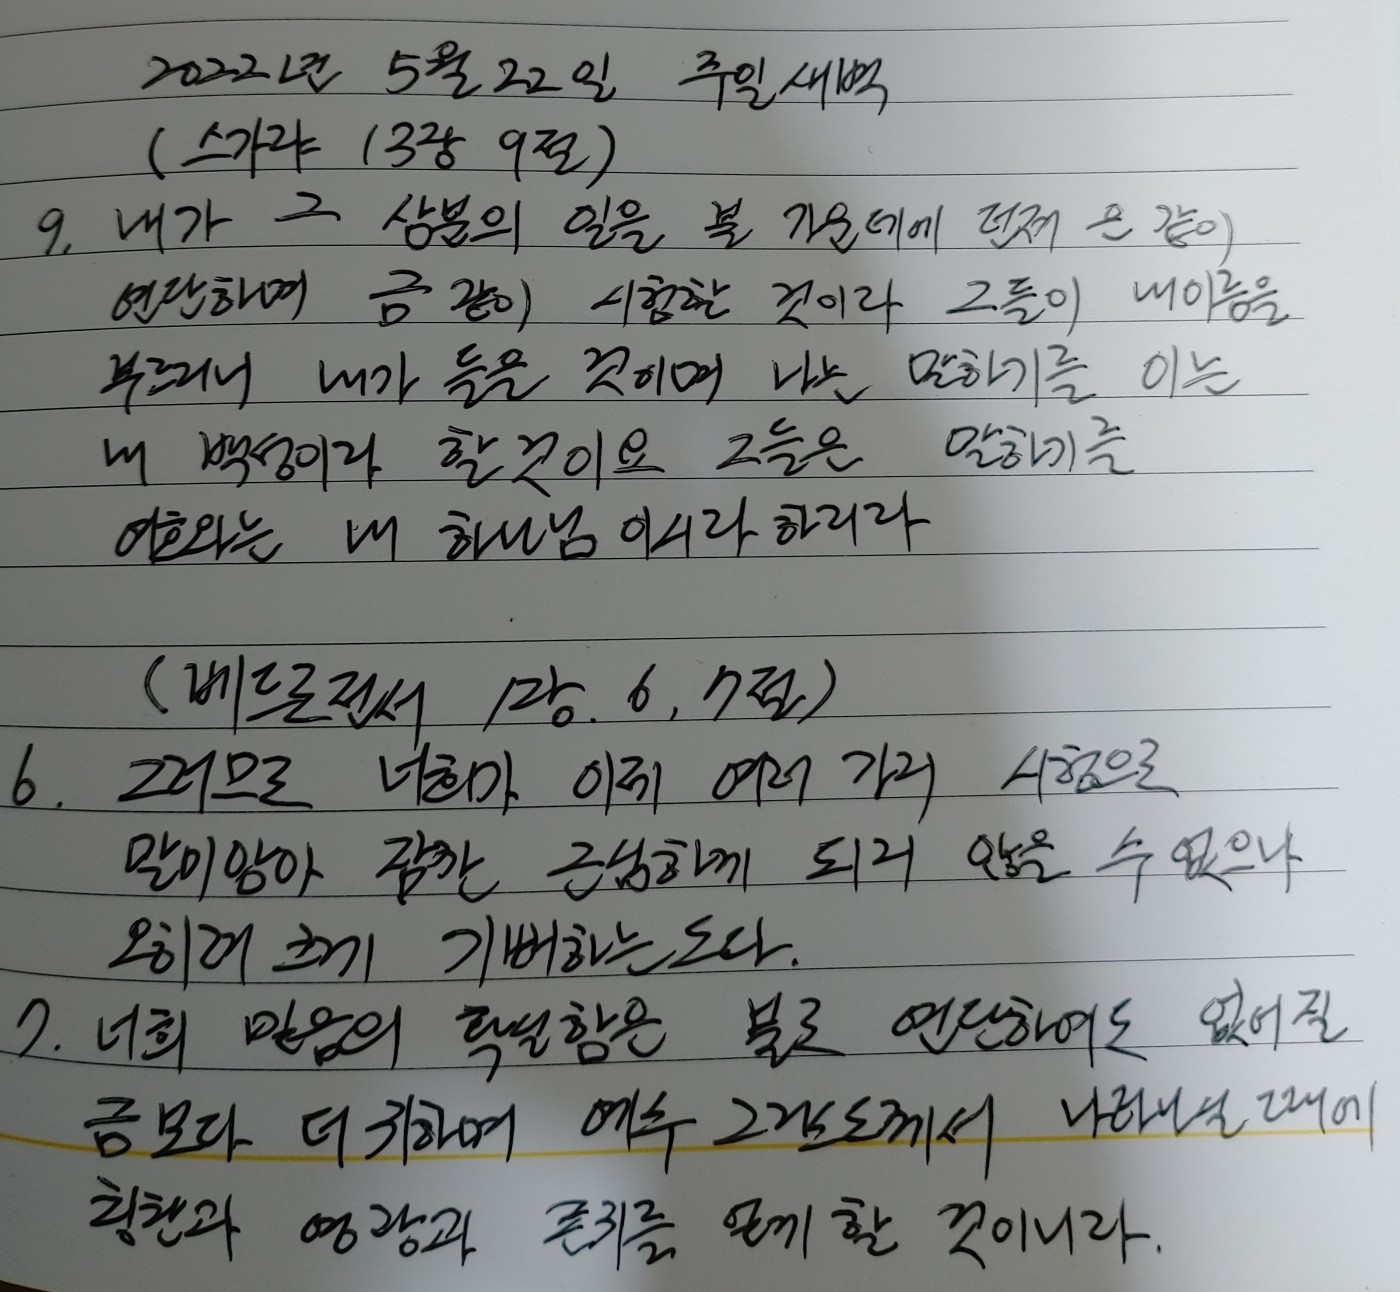 2022년 5월 22일 주일새벽
(스가랴 13장 9절)
9. 내가 그 삼분의 일을 불 가운데에 던져 은 같이
연단하며 금 같이 시험할 것이라 그들이 내이름을
부르리니 내가 들을 것이며 나는 말하기를 이는
내 백성이라 할것이요 그들은 말하기를
여호와는 내 하나님 이시라하리라
(베드로전서 1장. 6, 7절)
6. 그러므로 너희가 이제 여러 가지 시험으로
말미암아 잠깐 근심하게 되지 않을 수 없으나
오히려 크게 기뻐하는도다.
7. 너희 믿음의 확실함은 불로 연단하여도 없어질
금보다 더 귀하며 예수 그리스도께서 나타나실 때에
칭찬과 영광과 존귀를 얻게 할 것이니라.